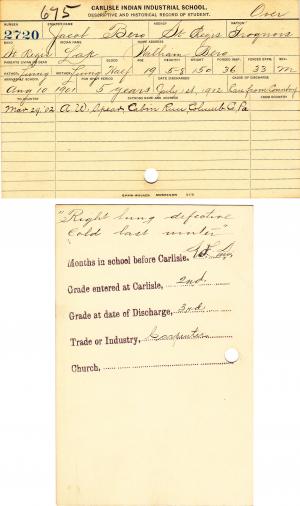 675 CARLISLE INDIAN INDUSTRIAL SCHOOL. Over
DESCRIPTIVE AND HISTORICAL RECORD OF STUDENT.
NUMBER ENGLISH NAME AGENCY NATION
2720 Jacob Bero St Regis Iroquois
BAND INDIAN NAME HOME ADDRESS
St Regis Lask Nathan Bero
PARENTS LIVING OR DEAD BLOOD AGE HEIGHT WEIGHT FORCED INSP. FORCED EXPR. SEX
FATHER Living MOTHER Living Half 19 5-8 150 36 33 M
ARRIVED AT SCHOOL FOR WHAT PERIOD DATE DISCHARGED CAUSE OF DISCHARGE
Aug 10 1901 5 years July 1st, 1912 from Country
TO COUNTRY PATRONS NAME AND ADDRESS FROM COUNTRY
Mar 29 '02 A. W. Spear, Cabin Run, Columb. Co, Pa
"Right lung defective
Cold last winter"
Months in school before Carlisle,
Grade entered at Carlisle, 2nd
Grade at date of Discharge, 3rd
Trade or Industry, Carpenter
Church,